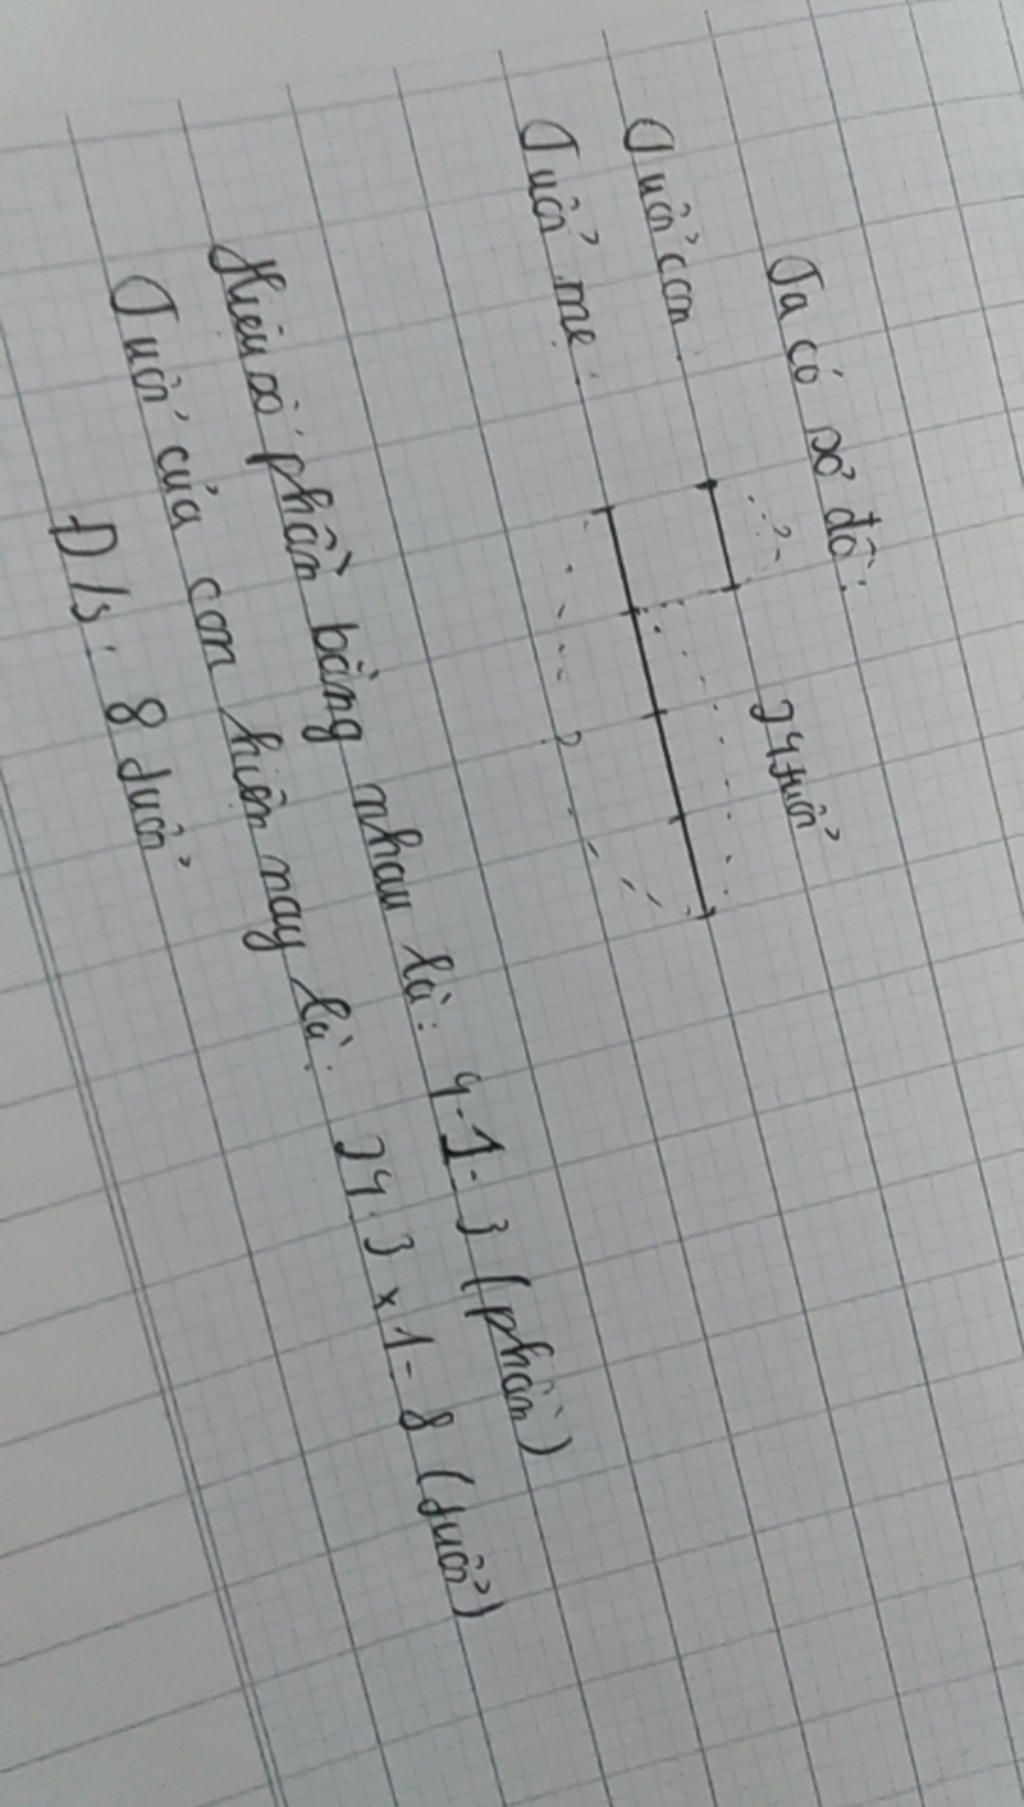 Ta có sơ đồ:
?
24 tuổi
Tuổi con
Tuổi mẹ:
?
Hiệu số phần bằng nhau là: 4-1=3 (phần)
Tuổi của con hiện nay là: 24:3x1=8 (tuổi)
Đ/s: 8 tuổi